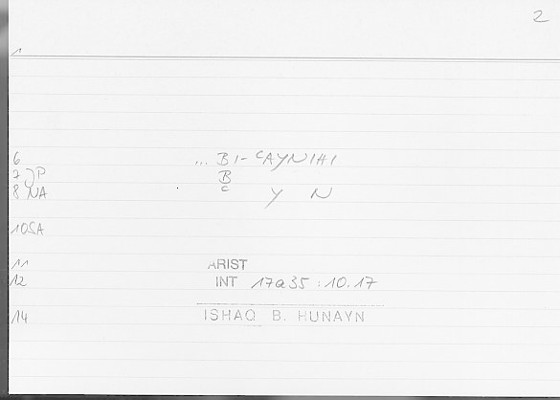 2
1
6 ... BI-ʿAYNIHI
7 JP B
8 NA C Y N
10SA
11 ARIST
12 INT 17a35 : 10.17
14 ISHAQ B. HUNAYN